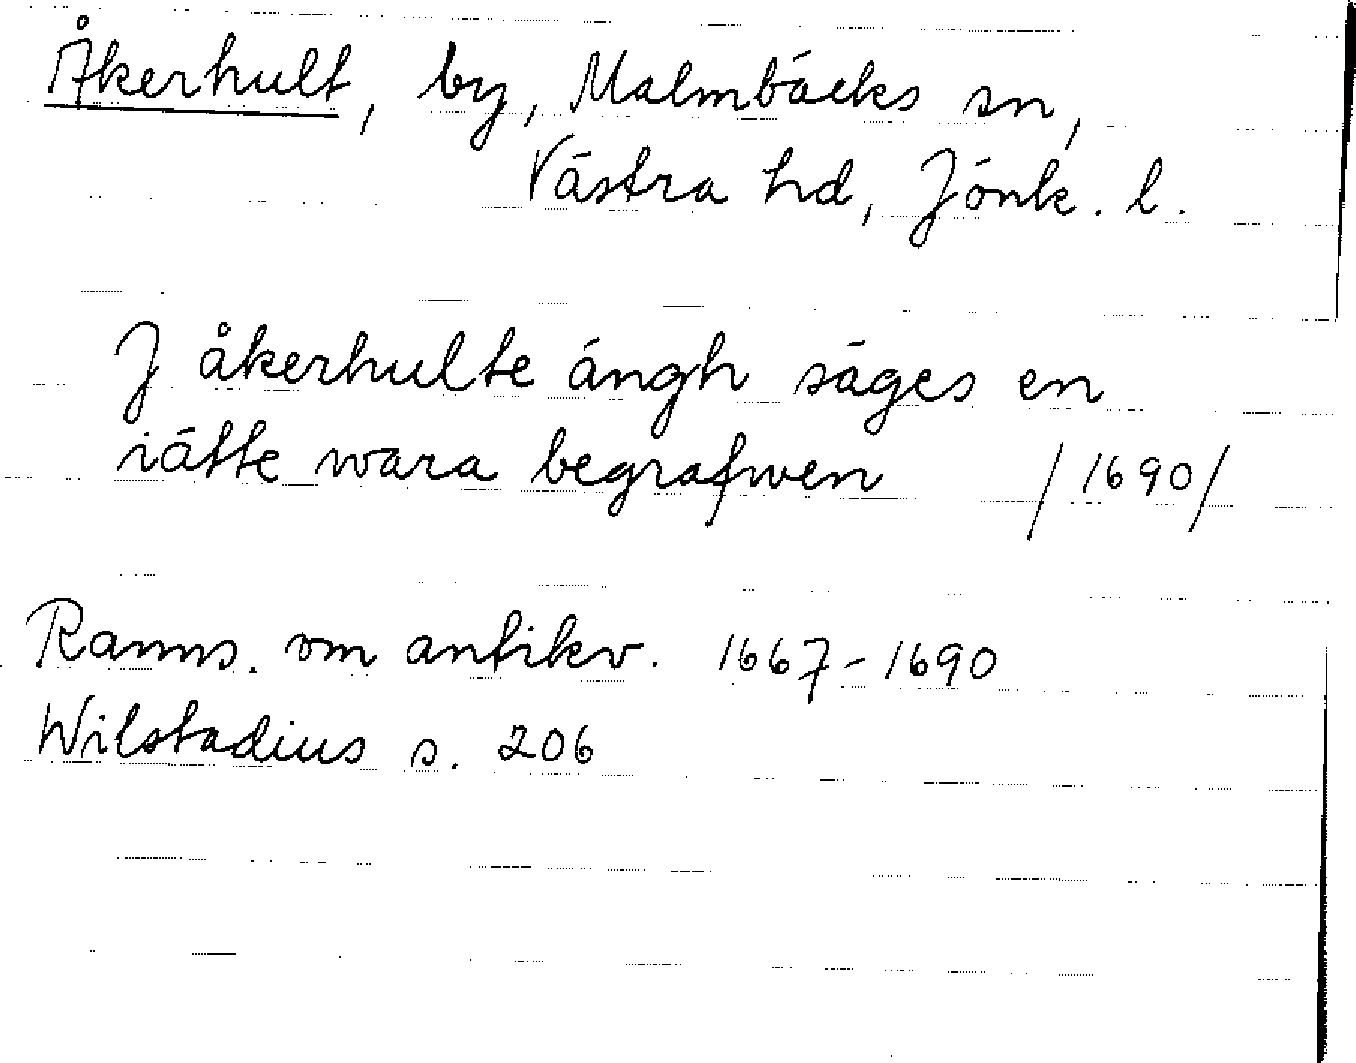 Åkerhult, by, Malmbäcks sn,
Västra hd, Jönk. l.
J åkerhulte ängh säges en
iätte wara begrafwen /1690/
Ranns. om antikv. 1667-1690
Wilstadius s. 206